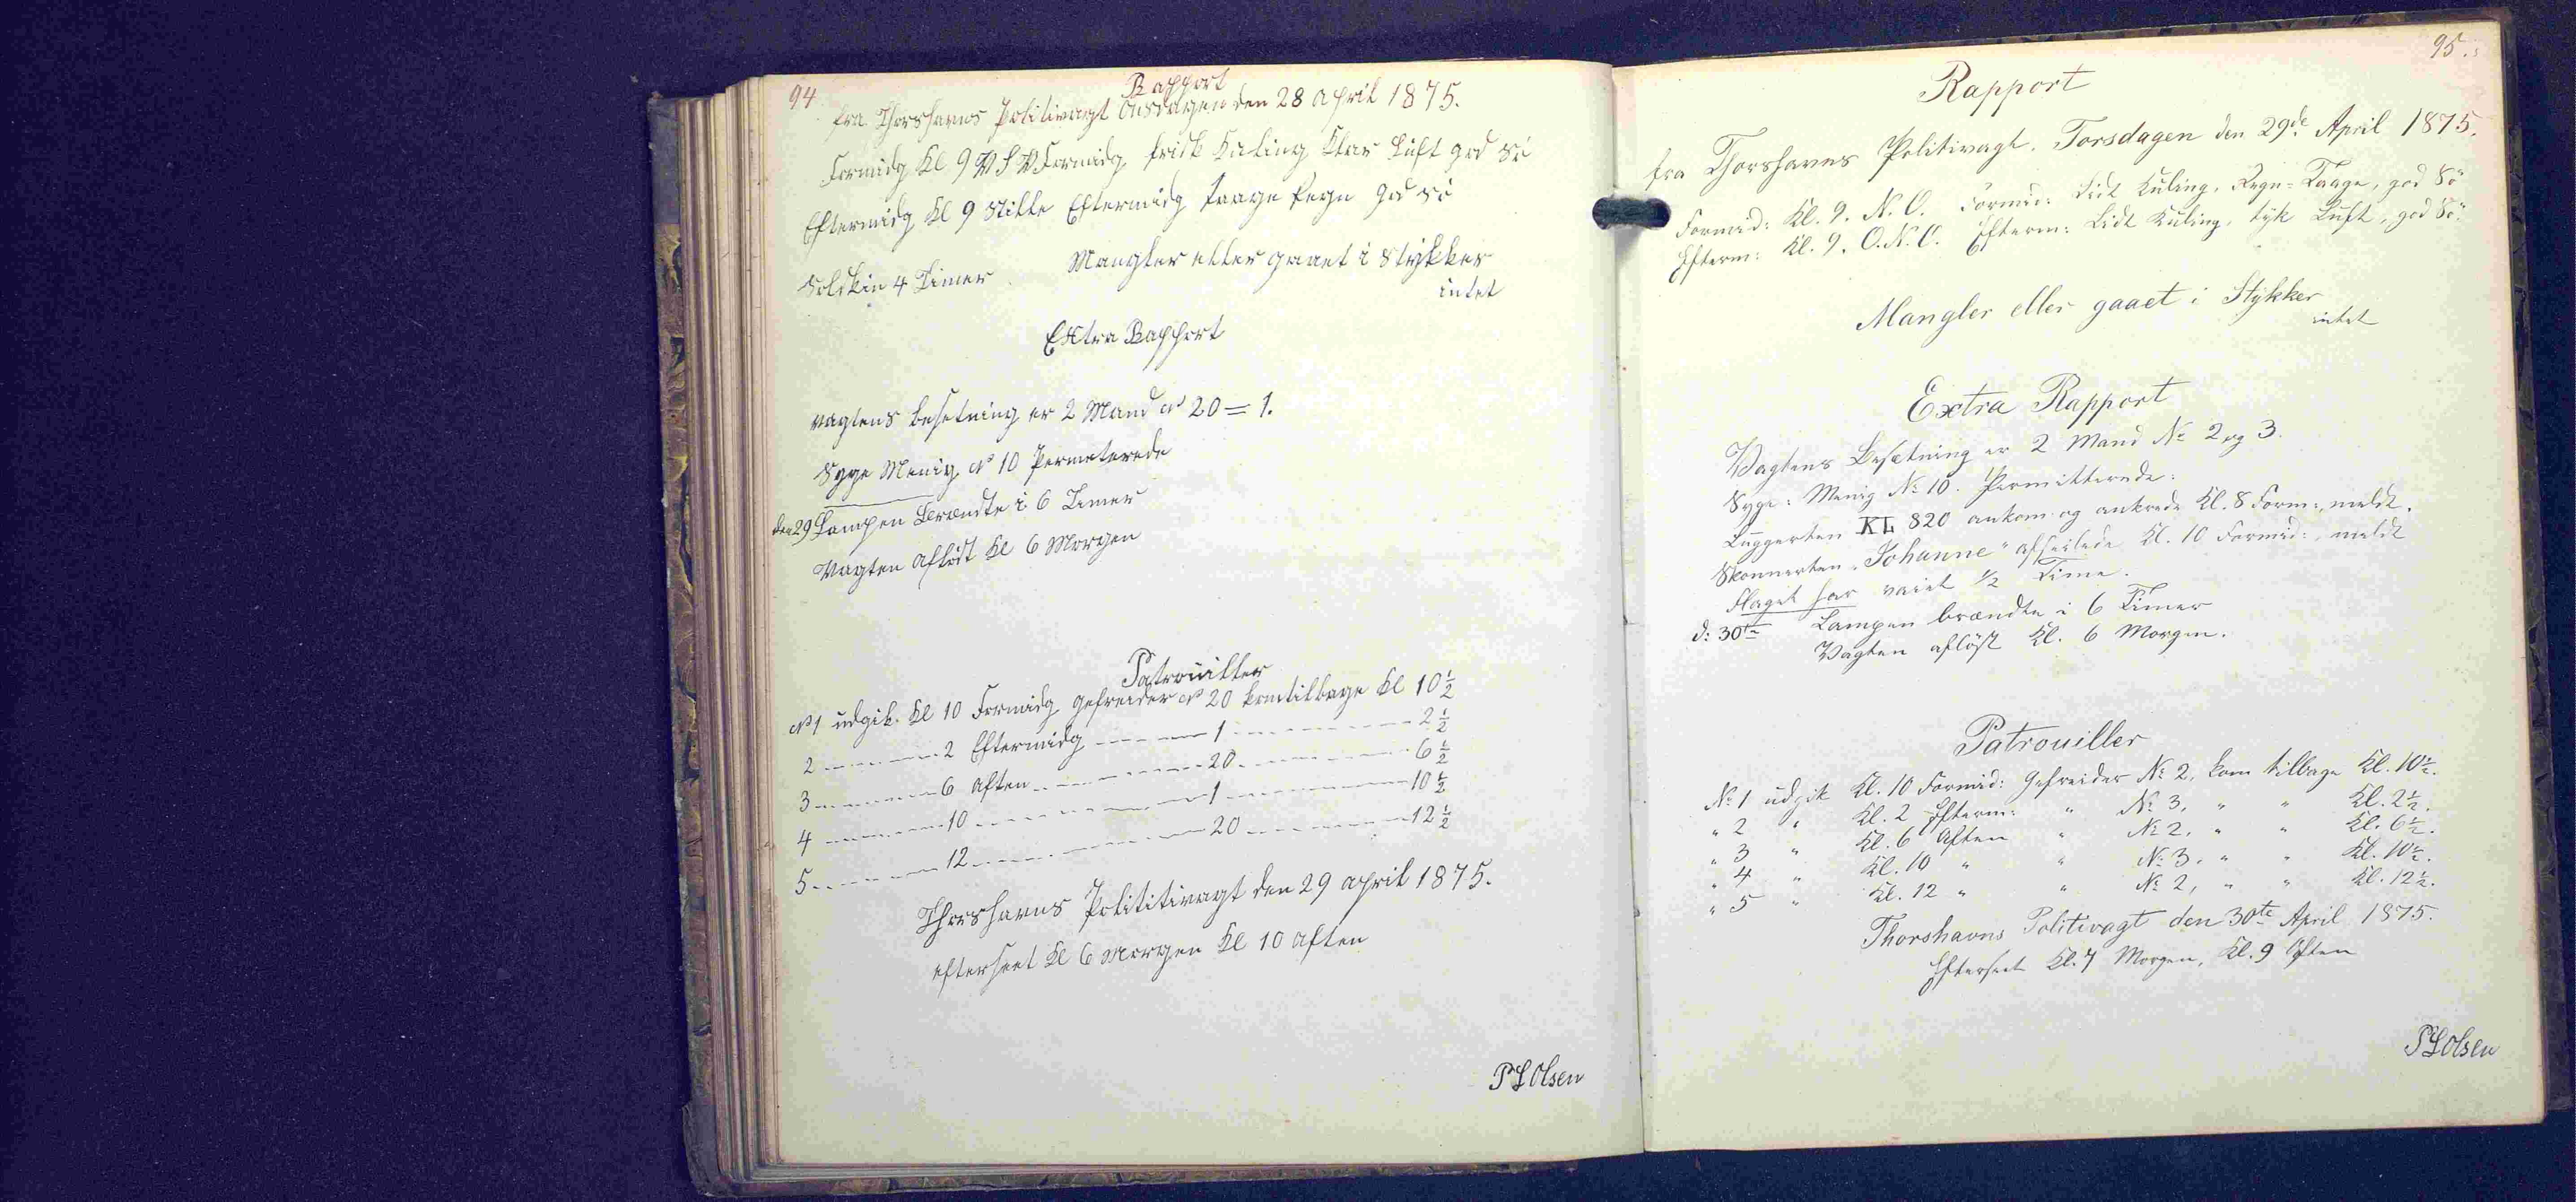 94
Rapport
fra Thorshavns Politivagt Onsdagen den 28 April 1875.
Formidg Kl 9 V S V Formidg frisk Kuling Klar Luft god Sö
Eftermidg Kl 9 Stille Eftermidg Taage Regn god Sö
Solskin 4 Timer
Mangler eller gaaet i Stykker
intet
Extra Rapport
Vagtens besetning er 2 Mand No 20 = 1.
Syge Menig No 10 Permeterede
den 29 Lampen Brændte i 6 Timer
Vagten Aflöst Kl 6 Morgen
Patrouiller
No 1 udgik Kl 10 Formidg gefreider No 20 kom tilbage Kl 10 ½
2 — 2 Eftermidg — 1 — 2 ½
3 — 6 Aften — 20 — 6 ½
4 — 10 — 1 — 10 ½
5 — 12 — 20 — 12 ½
Thorshavns Polititivagt den 29 april 1875.
efterseet Kl 6 Morgen Kl 10 Aften
P L Olsen
95.
Rapport
fra Thorshavns Politivagt. Torsdagen den 29de April 1875.
Formid: Kl. 9. N. O. Formid: Lidt Kuling, Regn=Taage, god Sö
Efterm: Kl. 9. O. N. O. Efterm: Lidt Kuling, tyk Luft, god Sö.
Mangler eller gaaet i Stykker
intet
Extra Rapport
Vagtens Besætning er 2 Mand No 2 og 3.
Syge: Menig No 10. Permitterede:
Luggerten KL 820 ankom og ankrede Kl. 8 Form:, meldt.
Skonnerten "Johanne" afseilede Kl. 10 Formid:, meldt
Flaget har vaiet ½ Time.
d: 30te Lampen brændte i 6 Timer
Vagten aflöst Kl. 6 Morgen.
Patrouiller
No 1 udgik Kl. 10 Formid: Gefreider No 2, kom tilbage Kl. 10½.
" 2 " Kl. 2 Efterm: " No 3, " " Kl. 2½.
" 3 " Kl. 6 Aften " No 2, " " Kl. 6½.
" 4 " Kl. 10 " " No 3, " " Kl. 10½.
" 5 " Kl. 12 " " No 2, " " Kl. 12½.
Thorshavns Politivagt den 30te April 1875.
Efterseet Kl. 7 Morgen, Kl. 9 Aften
P L Olsen